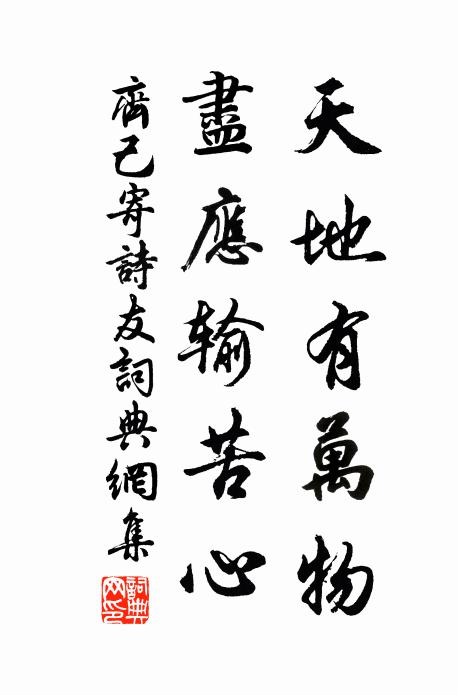 天地有萬物
盡應输苦心
齊己寄詩友詞典網集
詞典網印